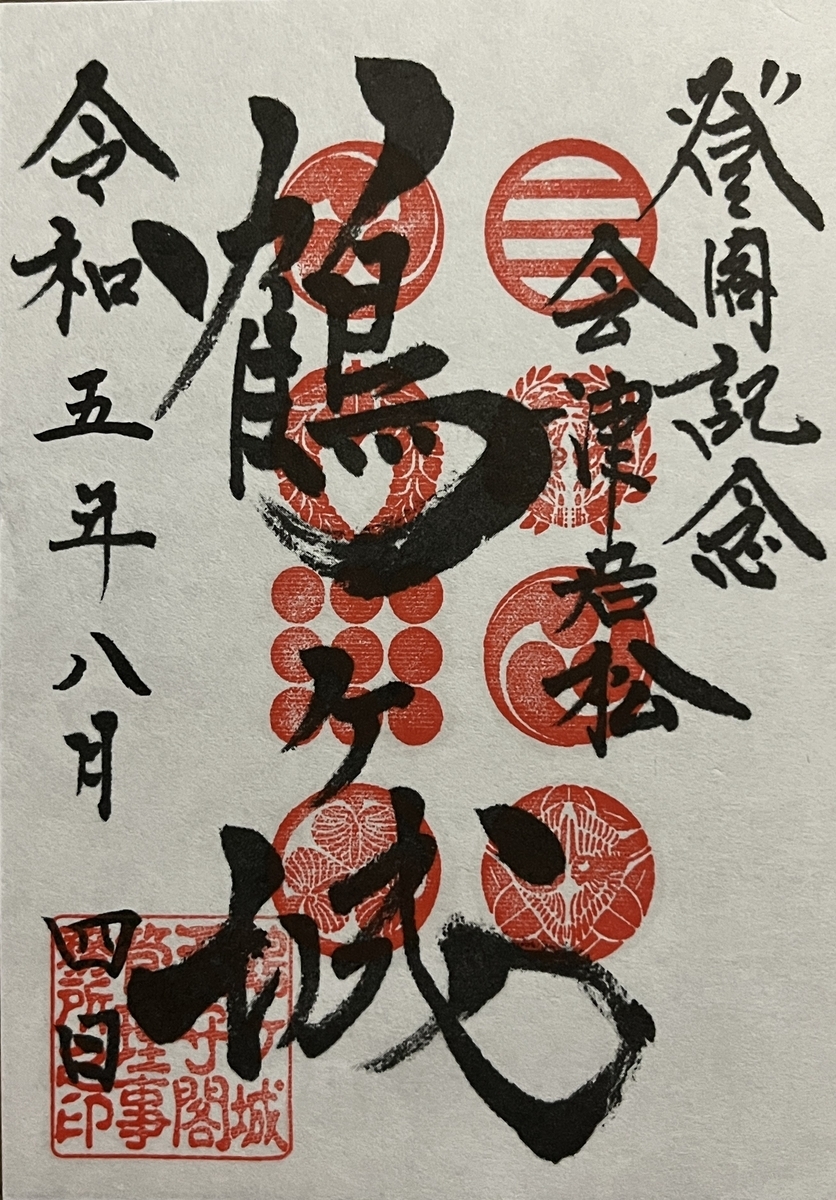 登閣記念
会津若松
鶴ヶ城
令和五年八月四日
鶴ヶ城
天守閣
管理事
務所之印